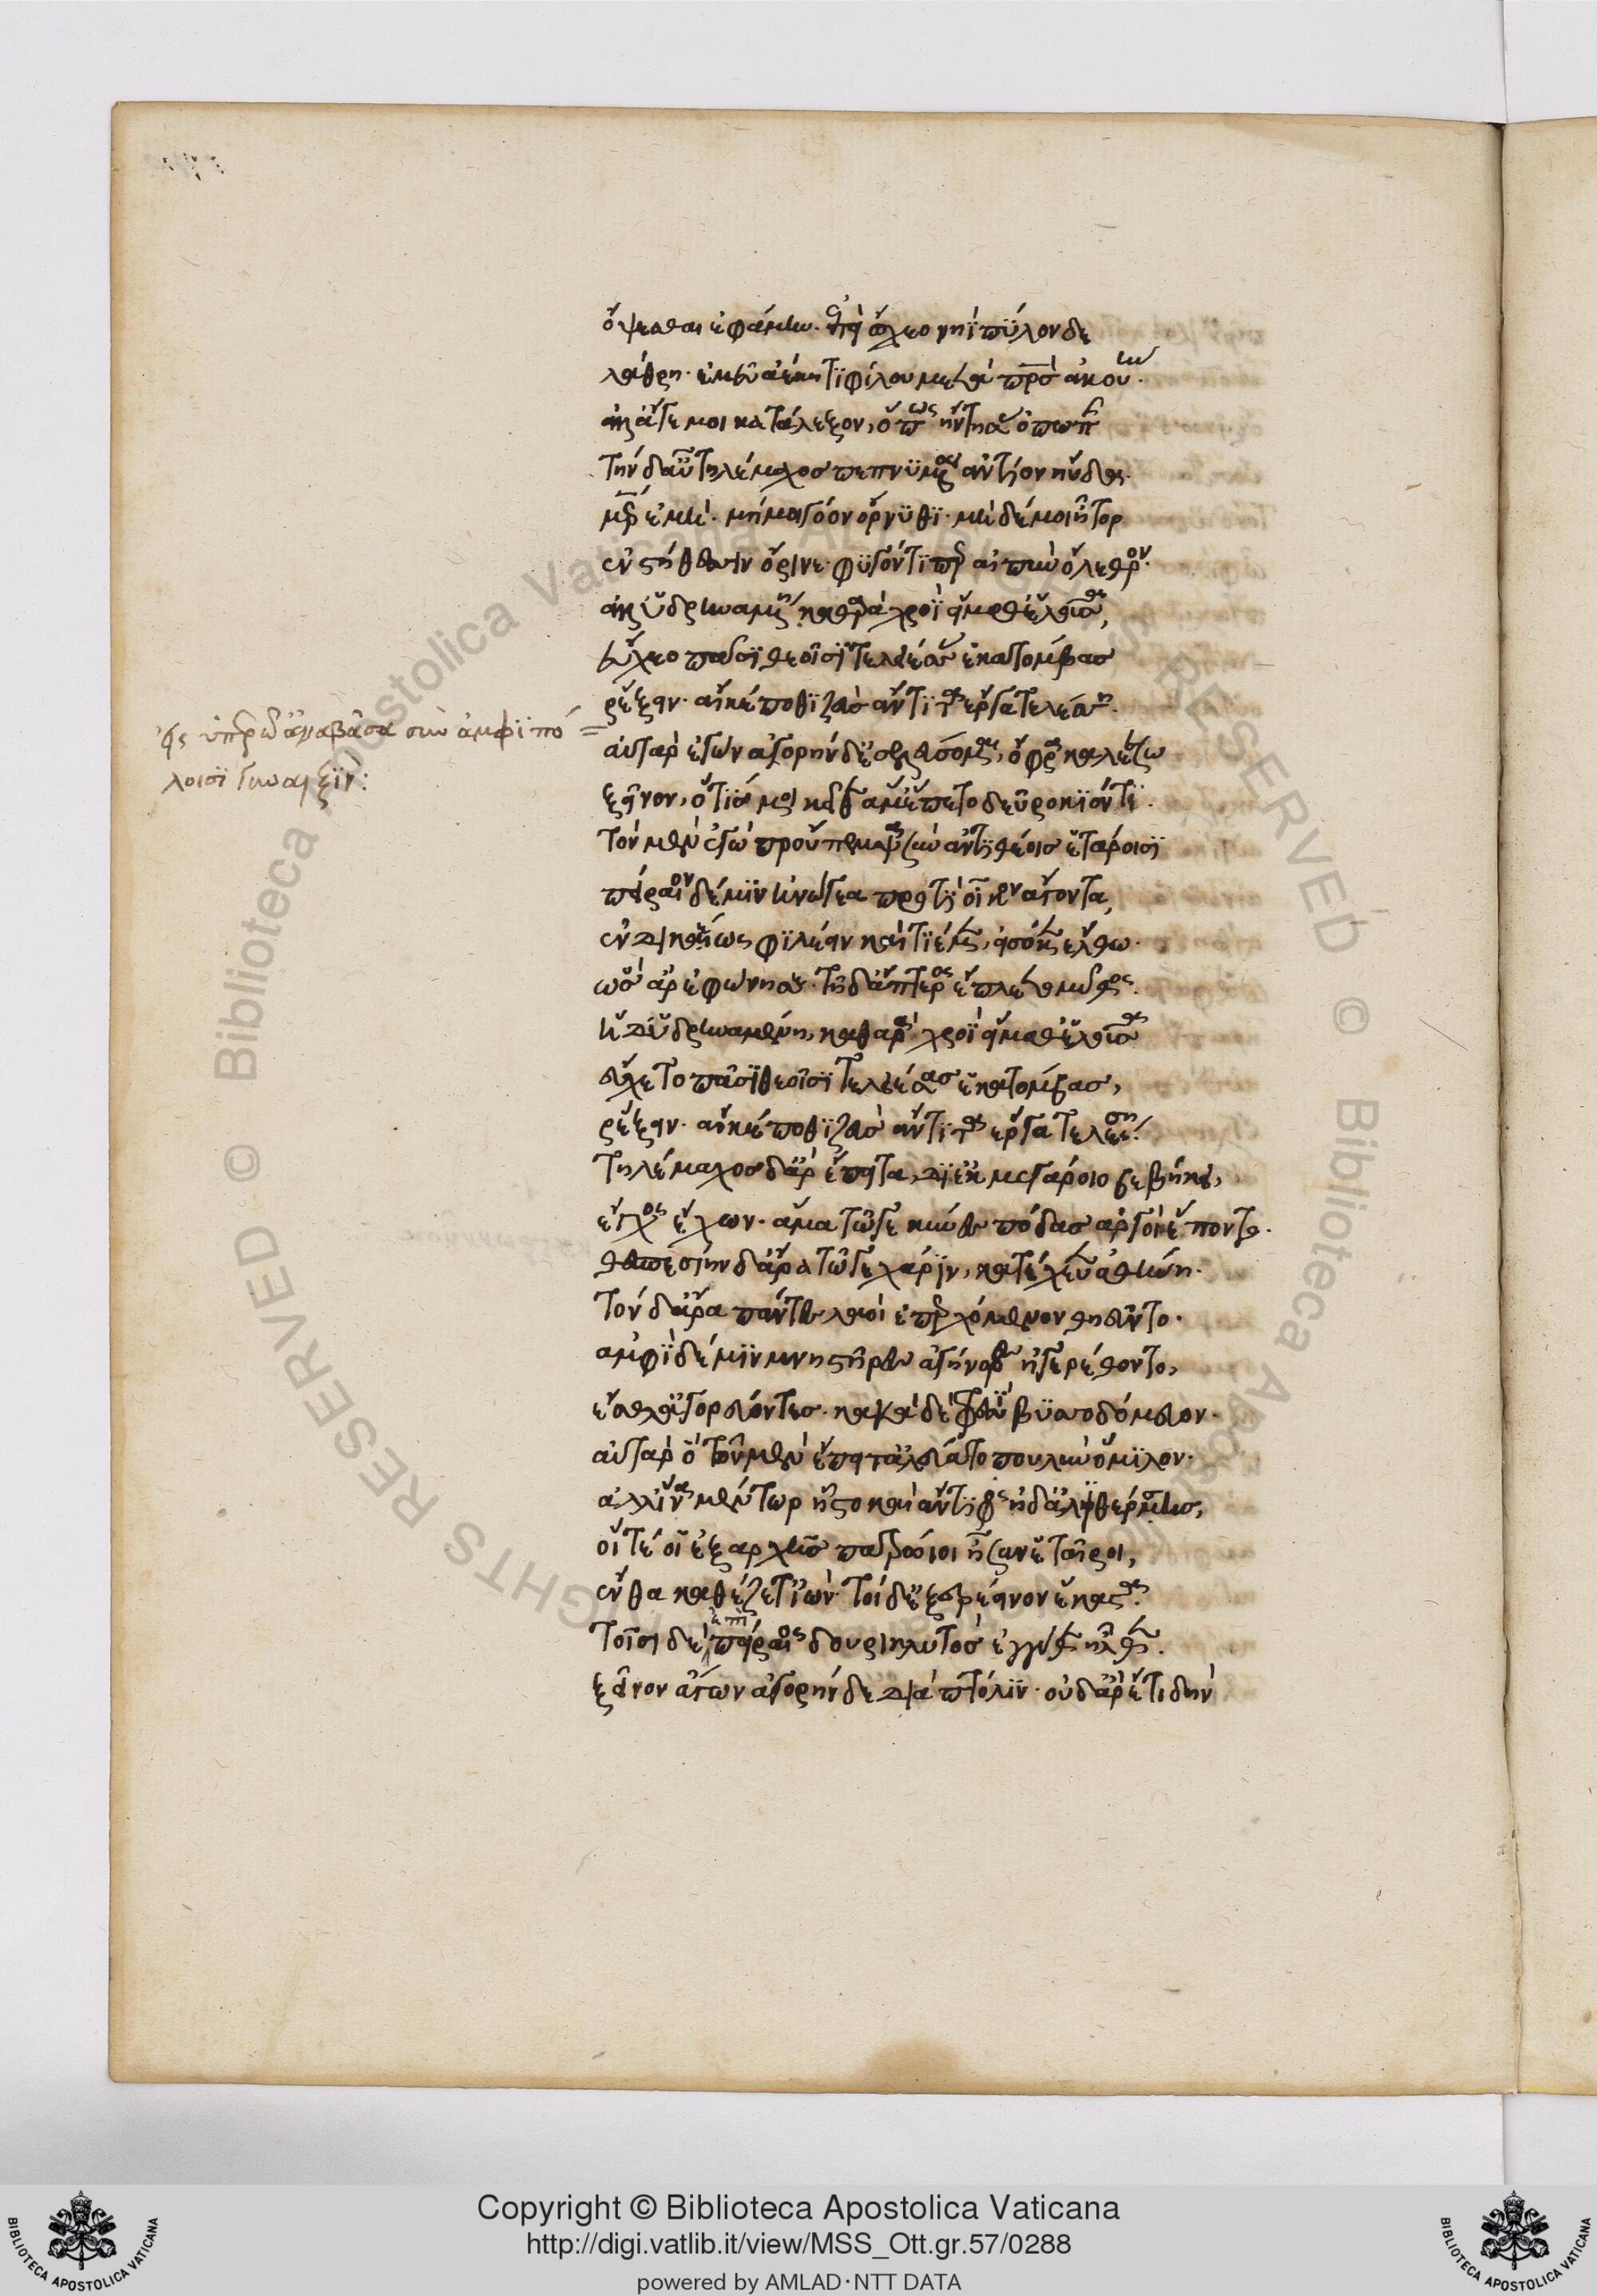 ὄψεσθαι ἐφάμην· ἐπεὶ ὤχεο νηῒ πύλονδε
λάθρη· ἐμεῦ ἀέκητι φίλου μετὰ πατρὸς ἀκουήν·
ἀλλ' ἄγε μοι κατάλεξον, ὅπως ἤντησας ὀπωπῆς
τὴν δ' αὖ τηλέμαχος πεπνυμένος ἀντίον ηὔδα·
μῆτερ ἐμή· μή μοι γόον ὄρνυθι· μηδέ μοι ἦτορ
ἐν στήθεσσιν ὄρινε· φυγόντι περ αἰπὺν ὄλεθρον·
ἀλλ' ὑδρηναμένη, καθαρὰ χροῒ εἵμαθ' ἑλοῦσα,
εὔχεο πᾶσι θεοῖσι τεληέσσας ἑκατόμβας
ῥέξειν· αἴ κέ ποθι ζεὺς ἄντιτα ἔργα τελέσση·
αὐτὰρ ἐγὼν ἀγορήνδε ἐσελεύσομαι, ὄφρα καλέσσω
ξεῖνον, ὅτις μοι κεῖθεν ἅμ' ἕπετο δεῦρο κιόντι·
τὸν μὲν ἐγὼ προὔπεμψα σὺν ἀντιθέοις ἑτάροισι
πείραιον δέ μιν ἠνώγεα προτὶ οἶκον ἄγοντα,
ἐνδυκέως φιλέειν καὶ τιέμεν, εἰσόκεν ἔλθω·
ὣς ἄρ' ἐφώνησε· τῇ δ' ἄπτερος ἔπλετο μῦθος·
ἡ δ' ὑδρηναμένη, καθαρὰ χροῒ εἵμαθ' ἑλοῦσα
εὔχετο πᾶσι θεοῖσι τεληέσσας ἑκατόμβας,
ῥέξειν· αἴ κέ ποθι ζεὺς ἄντιτα ἔργα τελέσση·
τηλέμαχος δ' ἄρ' ἔπειτα, διὲκ μεγάροιο βεβήκει,
ἔγχος ἔχων· ἅμα τῷγε κύνες πόδας ἀργοὶ ἕποντο·
θεσπεσίην δ' ἄρα τῷγε χάριν, κατέχευεν ἀθήνη·
τὸν δ' ἄρα πάντες λαοὶ ἐπερχόμενον θηεῦντο·
ἀμφὶ δέ μιν μνηστῆρες ἀγήνορες ἠγερέθοντο,
ἔσθλ' ἀγορεύοντες· κακὰ δὲ φρεσὶ βυσσοδόμευον·
αὐτὰρ ὁ τῶν μὲν ἔπειτα ἀλεύατο πουλὺν ὅμιλον·
ἀλλ' ἵνα μέντωρ ἧστο καὶ ἄντιφος ἠδ' ἁλιθέρσης,
οἵ τέ οἱ ἐξ ἀρχῆς πατρώιοι ἦσαν ἑταῖροι,
ἔνθα καθέζετ' ἰών· τοὶ δ' ἐξερέεινον ἕκαστα·
τοῖσι δὲ πείραιος δουρικλυτὸς ἐγγύθεν ἦλθεν·
ξεῖνον ἄγων ἀγορήνδε διὰ πτόλιν· οὐδ' ἄρ' ἔτι δὴν
εἰς ὑπερῷ' ἀναβᾶσα σὺν ἀμφιπό
λοισι γυναιξίν:
Copyright © Biblioteca Apostolica Vaticana
http://digi.vatlib.it/view/MSS_Ott.gr.57/0288
powered by AMLAD·NTT DATA